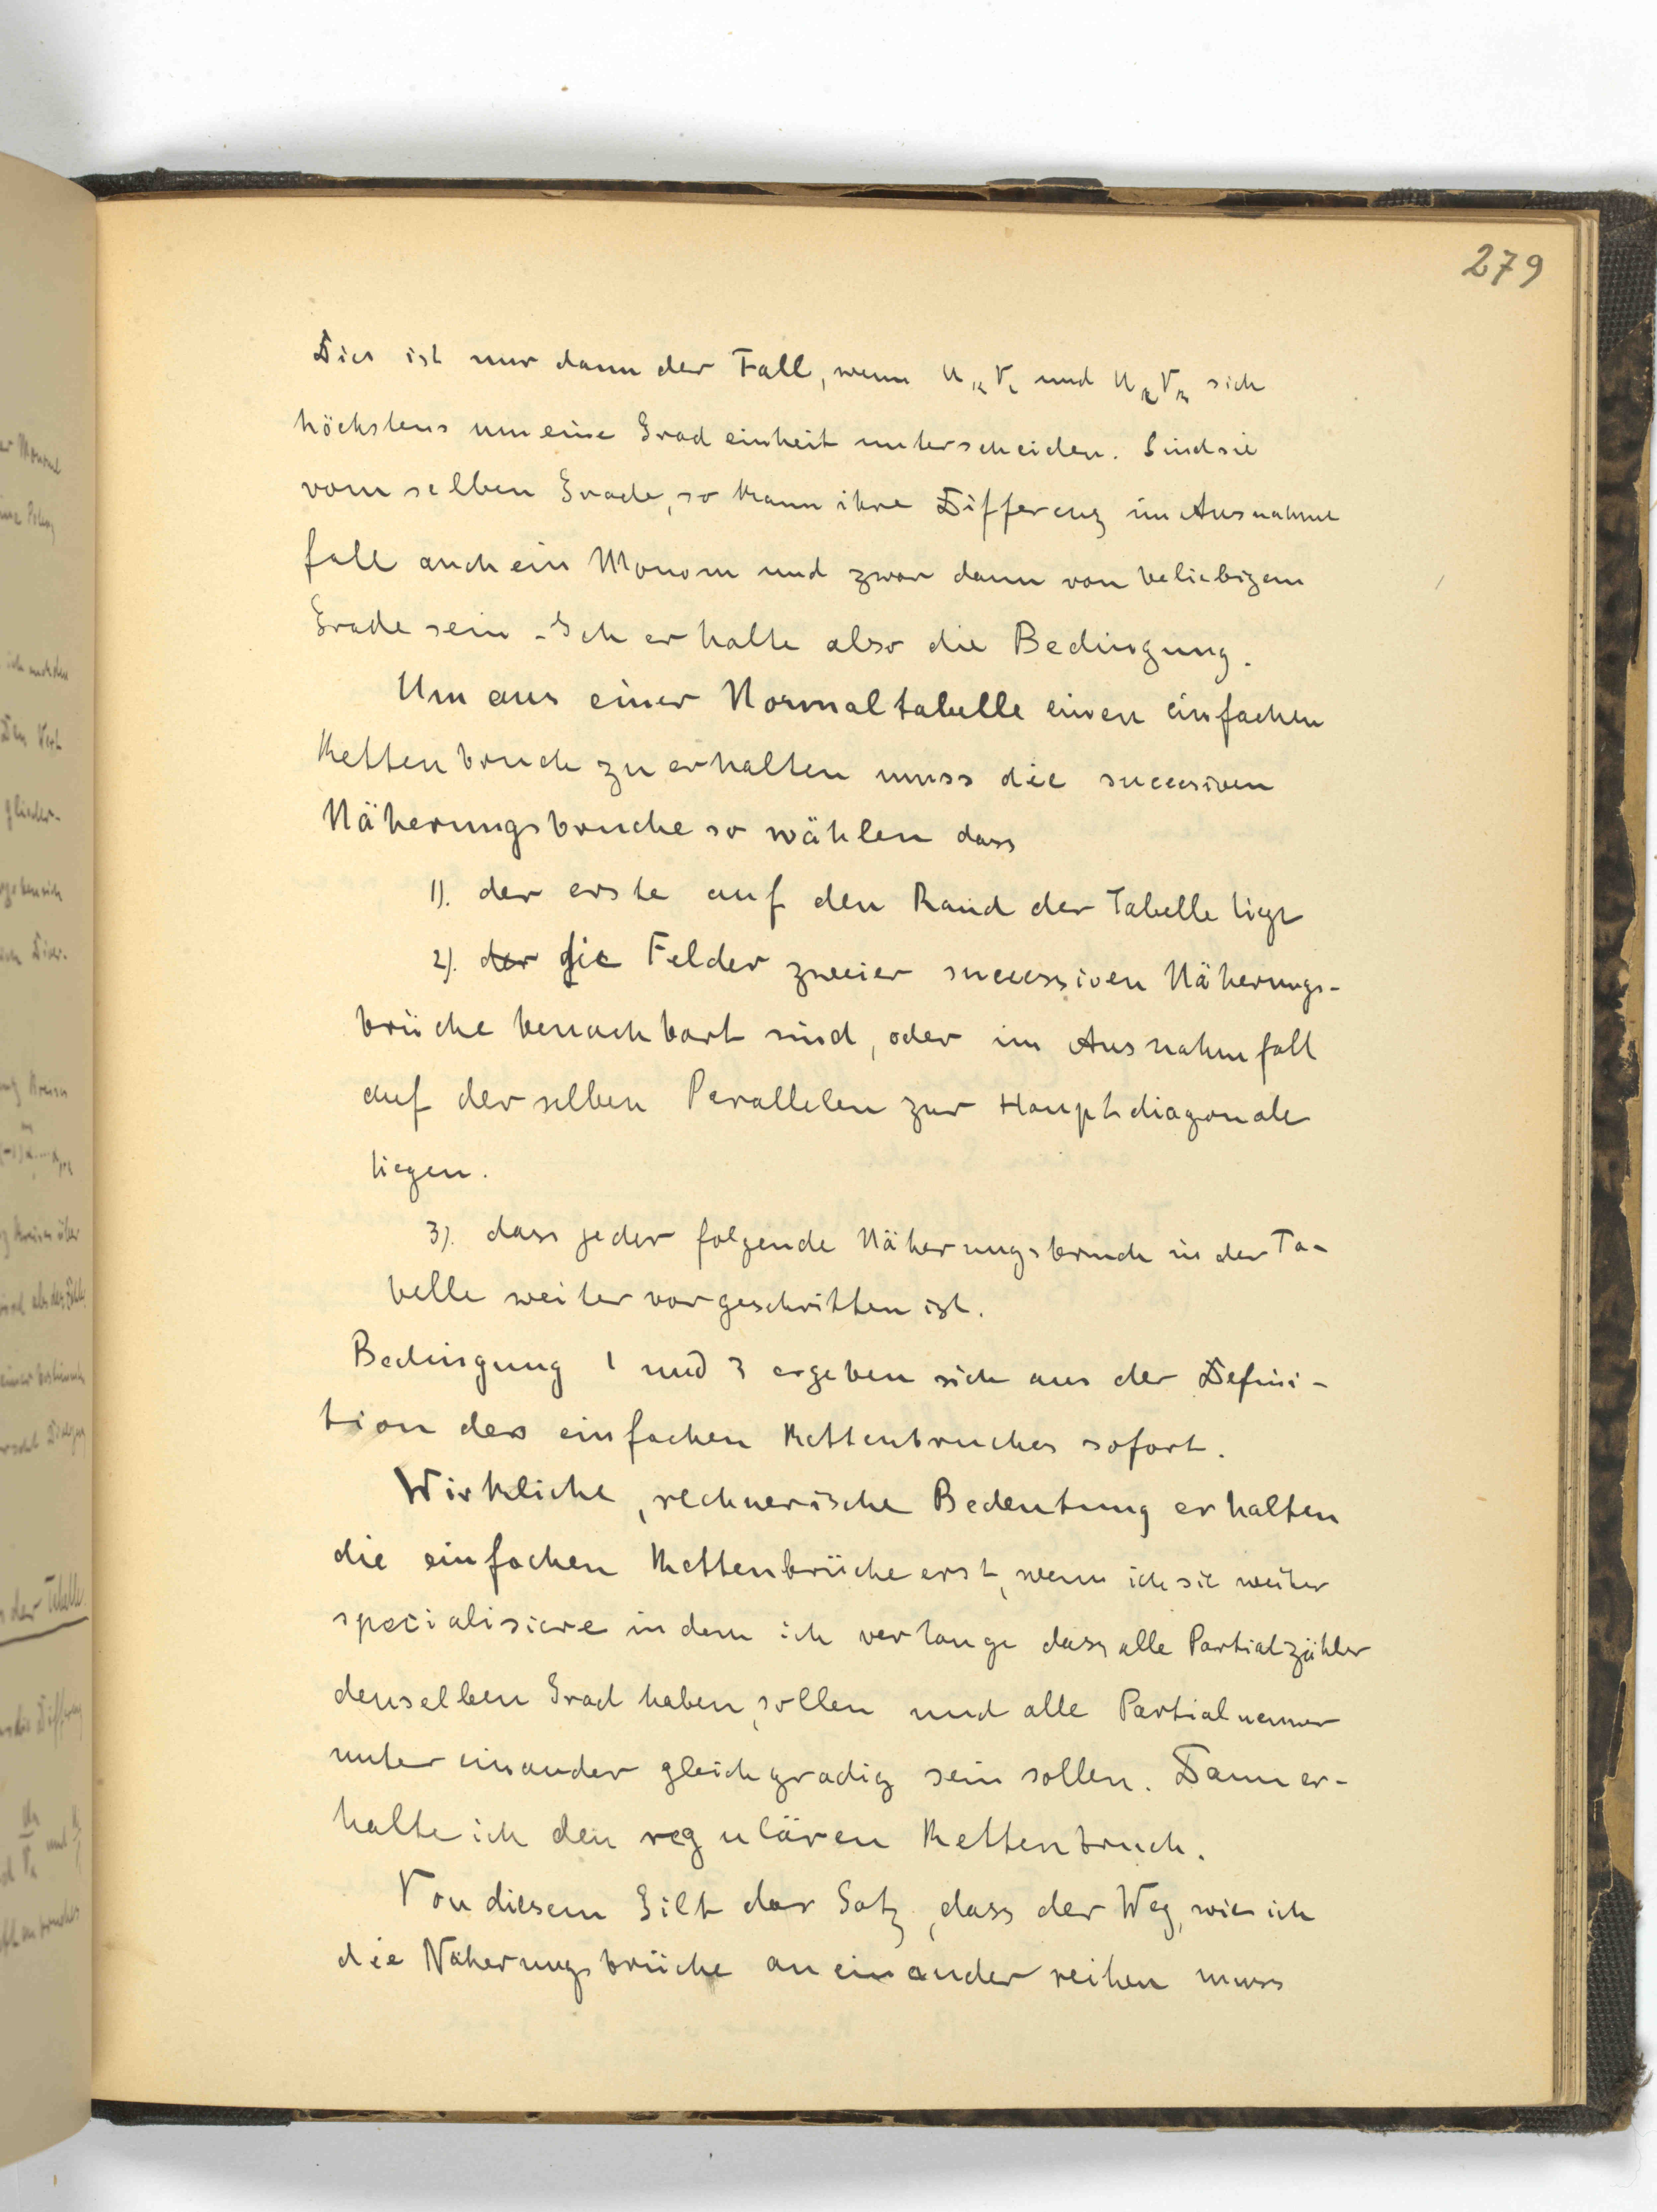 279
Dies ist nur dann der Fall, wenn U_κ V_λ und U_λ V_κ sich
höchstens um eine Gradeinheit unterscheiden. Sind sie
vom selben Grade, so kann ihre Differenz im Ausnahme
fall auch ein Monom und zwar dann von beliebigem
Grade sein. Ich erhalte also die Bedingung.
Um aus einer Normaltabelle einen einfachen
Kettenbruch zu erhalten muss die succesiven
Näherungsbruche so wählen dass
1). der erste auf den Rand der Tabelle liegt
2). der die Felder zweier successiven Näherungs-
brüche benachbart sind, oder im Ausnahmfall
auf derselben Perallelen zur Hauptdiagonale
liegen.
3). dass jeder folgende Näherungsbruch in der Ta-
belle weiter vorgeschritten ist.
Bedingung 1 und 3 ergeben sich aus der Defini-
tion des einfachen Kettenbruches sofort.
Wirkliche, rechnerische Bedeutung erhalten
die einfachen Kettenbrüche erst, wenn ich sie weiter
specialisiere indem ich verlange dass alle Partialzähler
denselben Grad haben, sollen und alle Partialnenner
unter einander gleichgradig sein sollen. Dann er-
halte ich den regulären Kettenbruch.
Von diesem Gilt der Satz, dass der Weg, wie ich
die Näherungsbrüche aneinander reihen muss